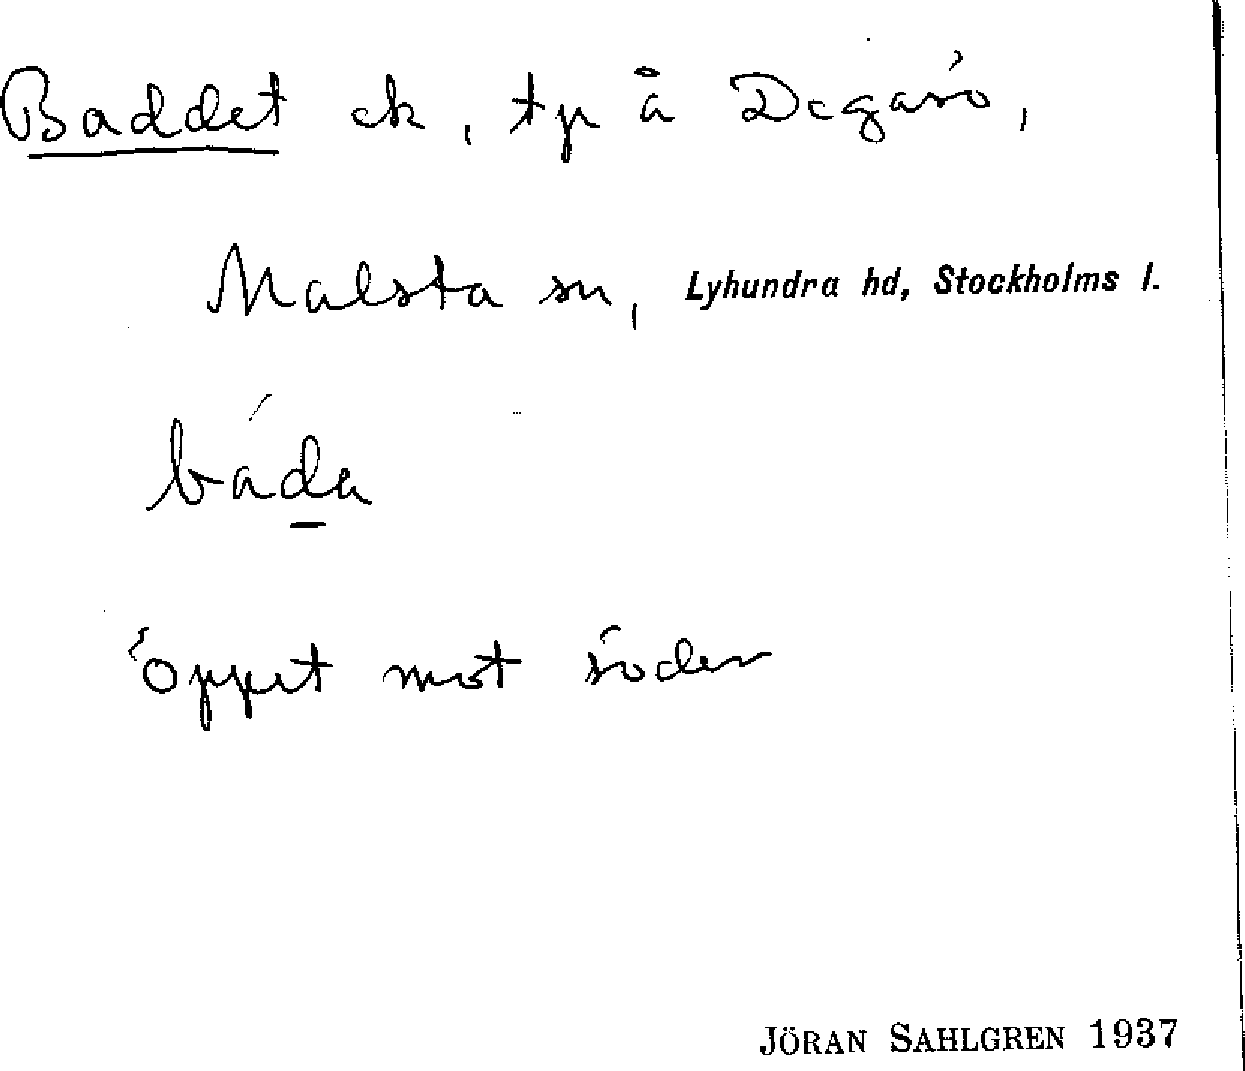 Baddet ek, tp å Degarö,
Malsta sn, Lyhundra hd, Stockholms l.
báda
öppet mot söder
JÖRAN SAHLGREN 1937